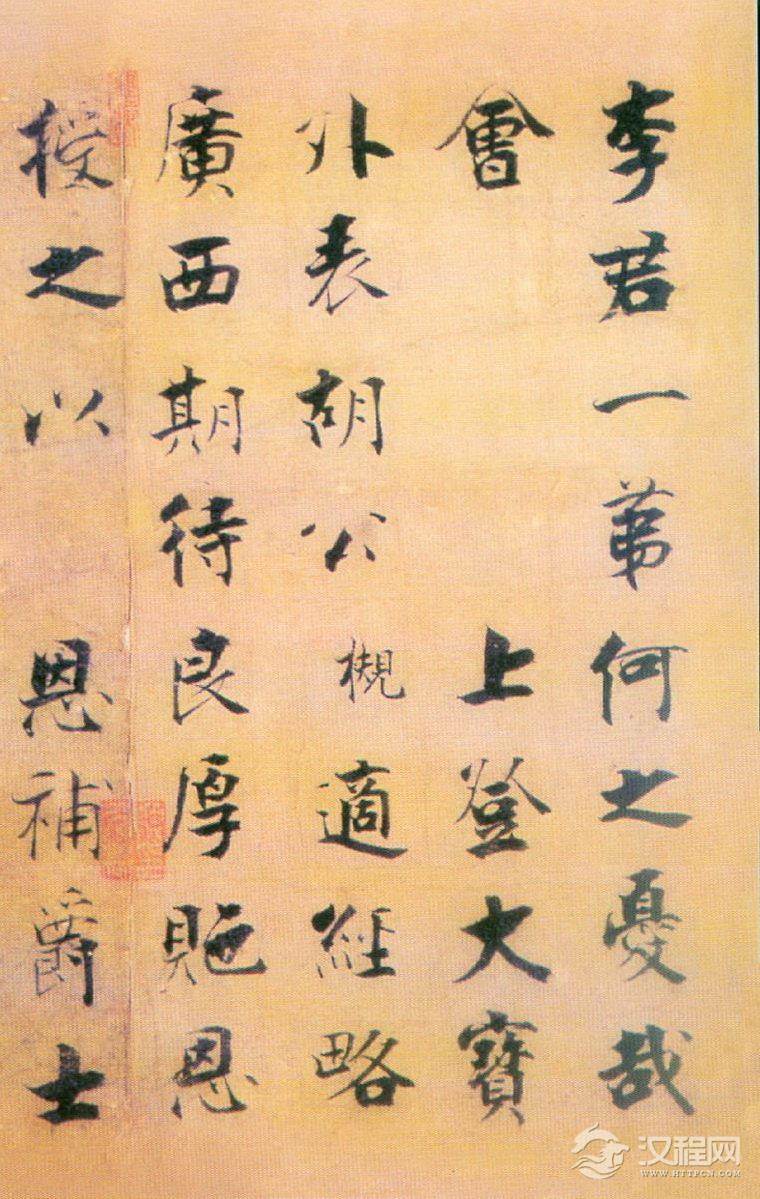 李君一弟何之憂哉
會 上登大寶
外表胡公槻適經略
廣西期待良厚貤恩
授之以 恩補爵士
汉程网
WWW.HTTPCN.COM